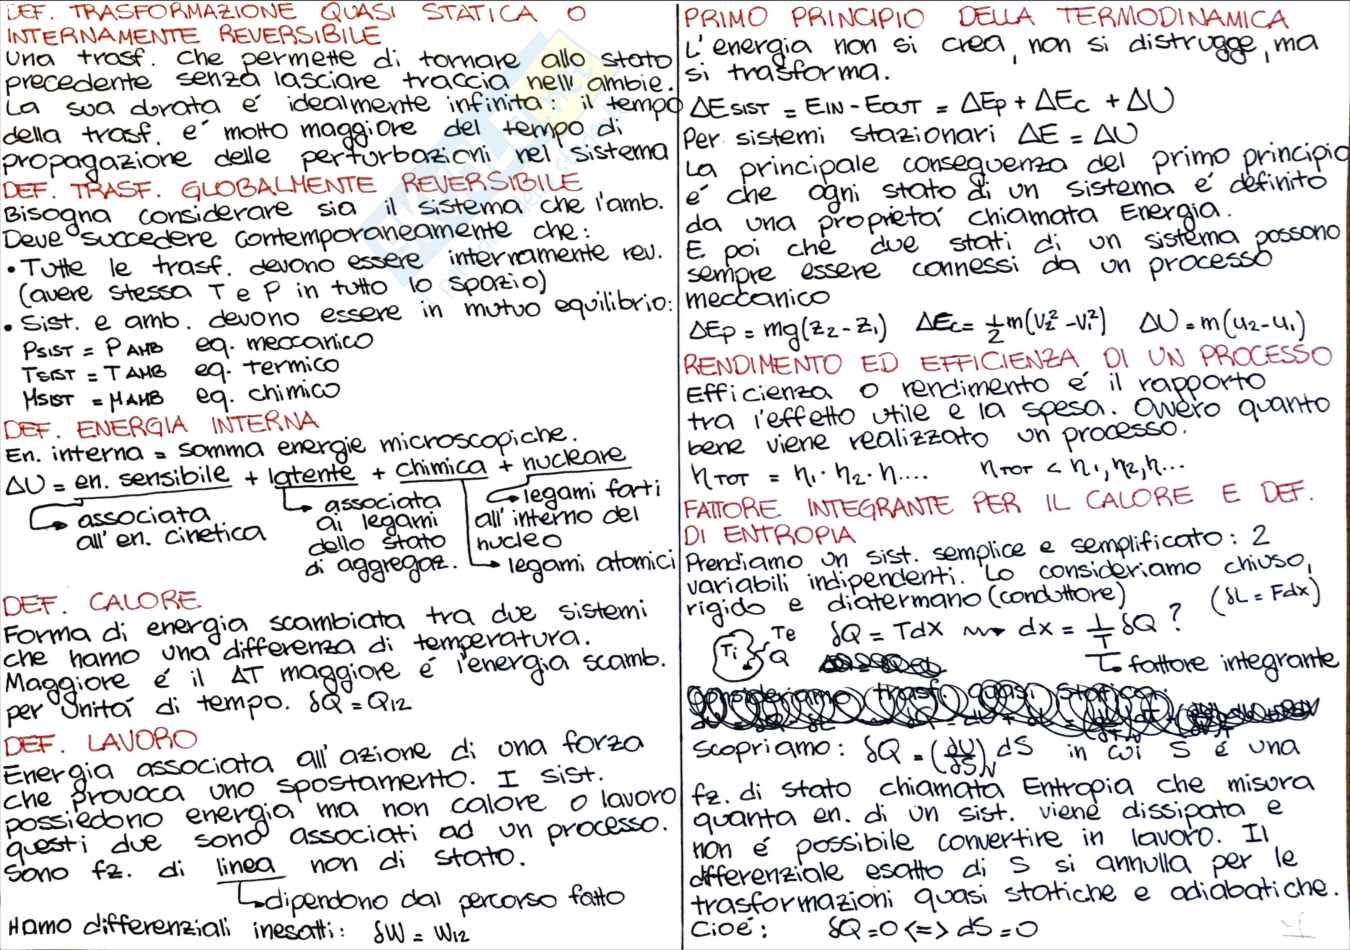 DEF. TRASFORMAZIONE QUASI STATICA O
INTERNAMENTE REVERSIBILE
Una trasf. che permette di tornare allo stato
precedente senza lasciare traccia nell'ambie.
La sua durata é idealmente infinita: il tempo
della trasf. e' molto maggiore del tempo di
propagazione delle perturbazioni nel sistema
DEF. TRASF. GLOBALMENTE REVERSIBILE
Bisogna considerare sia il sistema che l'amb.
Deve succedere contemporaneamente che:
• Tutte le trasf. devono essere internamente rev.
(avere stessa T e P in tutto lo spazio)
• Sist. e amb. devono essere in mutuo equilibrio:
PSIST = PAMB eq. meccanico
TSIST = TAMB eq. termico
μSIST = μAMB eq. chimico
DEF. ENERGIA INTERNA
En. interna = somma energie microscopiche.
ΔU = en. sensibile + latente + chimica + nucleare
↳ associata all'en. cinetica
↳ associata ai legami dello stato di aggregaz.
↳ legami forti all'interno del nucleo
↳ legami atomici
DEF. CALORE
Forma di energia scambiata tra due sistemi
che hanno una differenza di temperatura.
Maggiore é il ΔT maggiore é l'energia scamb.
per unitá di tempo. δQ = Q12
DEF. LAVORO
Energia associata all'azione di una forza
che provoca uno spostamento. I sist.
possiedono energia ma non calore o lavoro
questi due sono associati ad un processo.
Sono fz. di linea non di stato.
↳ dipendono dal percorso fatto
Hanno differenziali inesatti: δW = W12
PRIMO PRINCIPIO DELLA TERMODINAMICA
L'energia non si crea, non si distrugge, ma
si trasforma.
ΔESIST = EIN - EOUT = ΔEp + ΔEc + ΔU
Per sistemi stazionari ΔE = ΔU
La principale conseguenza del primo principio
é che ogni stato di un sistema é definito
da una proprietá chiamata Energia.
E poi che due stati di un sistema possono
sempre essere connessi da un processo
meccanico
ΔEp = mg(z2-z1) ΔEc = ½m(V2²-V1²) ΔU = m(u2-u1)
RENDIMENTO ED EFFICIENZA DI UN PROCESSO
Efficienza o rendimento é il rapporto
tra l'effetto utile e la spesa. Ovvero quanto
bene viene realizzato un processo.
ηTOT = η1 · η2 · η.... ηTOT < η1, η2, η...
FATTORE INTEGRANTE PER IL CALORE E DEF.
DI ENTROPIA
Prendiamo un sist. semplice e semplificato: 2
variabili indipendenti. Lo consideriamo chiuso,
rigido e diatermano (conduttore) (δL = Fdx)
Ti Te Q δQ = TdX ⇝ dx = 1/T δQ ?
↳ fattore integrante
Scopriamo: δQ = (∂U/∂S)V dS in cui S é una
fz. di stato chiamata Entropia che misura
quanta en. di un sist. viene dissipata e
non é possibile convertire in lavoro. Il
differenziale esatto di S si annulla per le
trasformazioni quasi statiche e adiabatiche.
Cioé: δQ = 0 <=> dS = 0